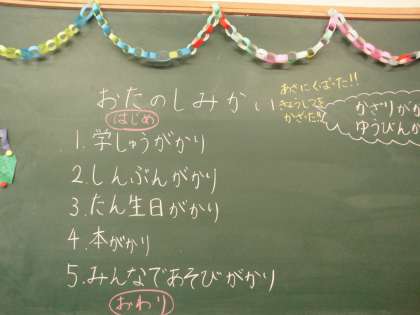 おたのしみかい
はじめ
1.学しゅうがかり
2.しんぶんがかり
3.たん生日がかり
4.本がかり
5.みんなであそびがかり
おわり
あさにくばった!!
きょうしつを
かざった!!
かざりが
ゆうびんが